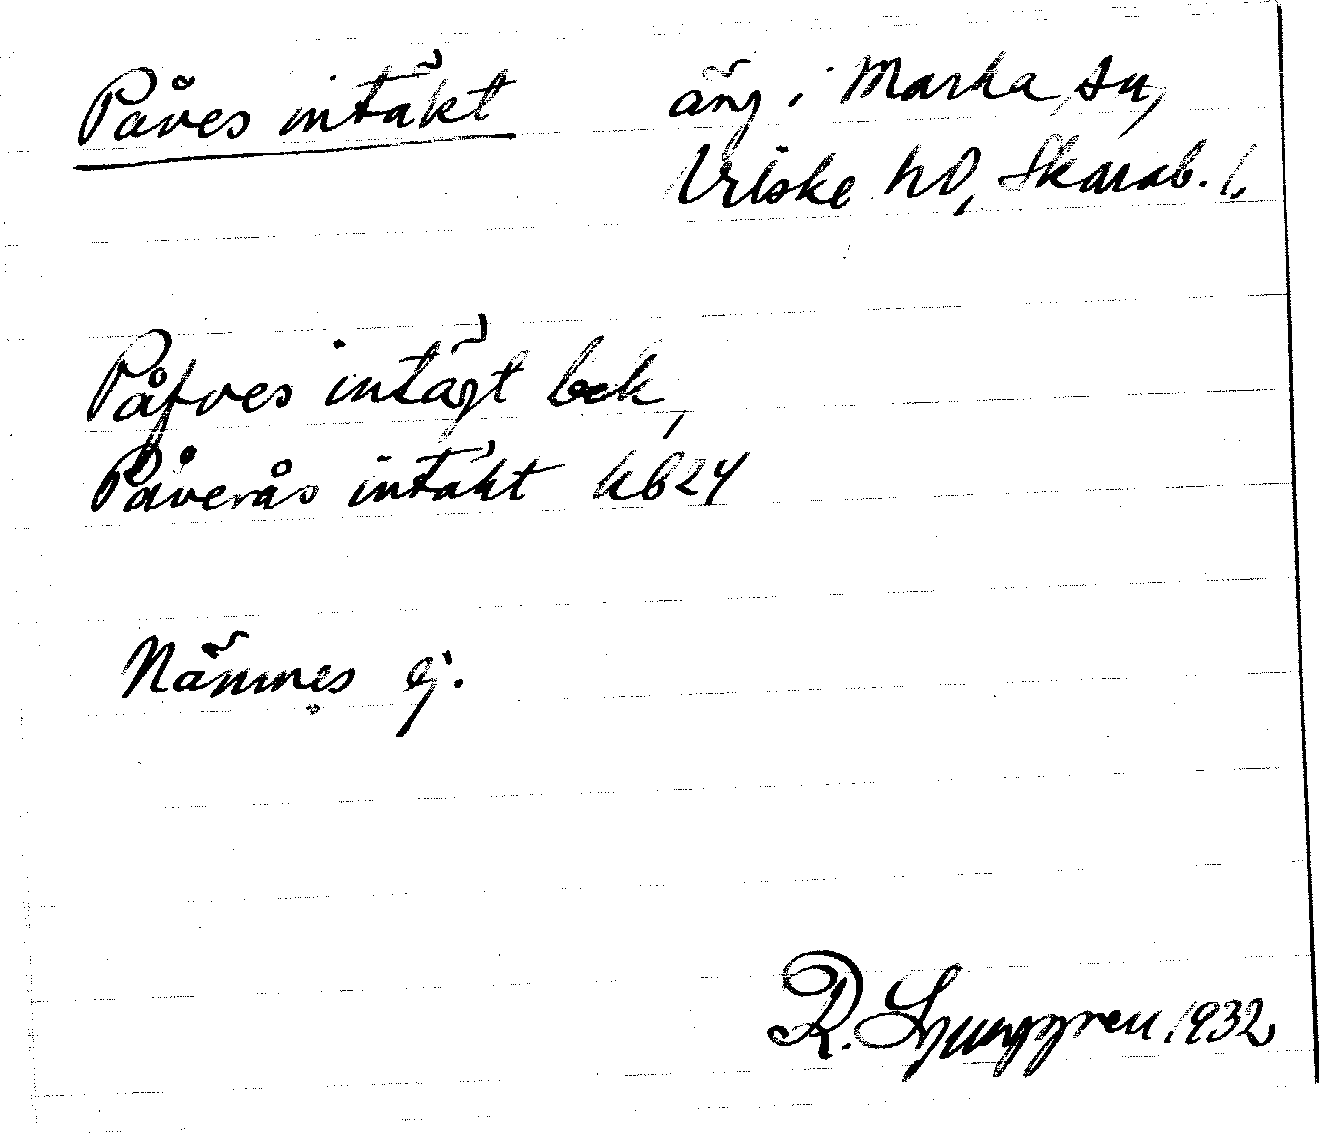 Påves intäkt äng i Marka sn,
Vilske hd, Skarab. l.
Påfves intägt bek,
Påverås intäkt kb24
Nämnes ej.
R. Ljunggren 1932